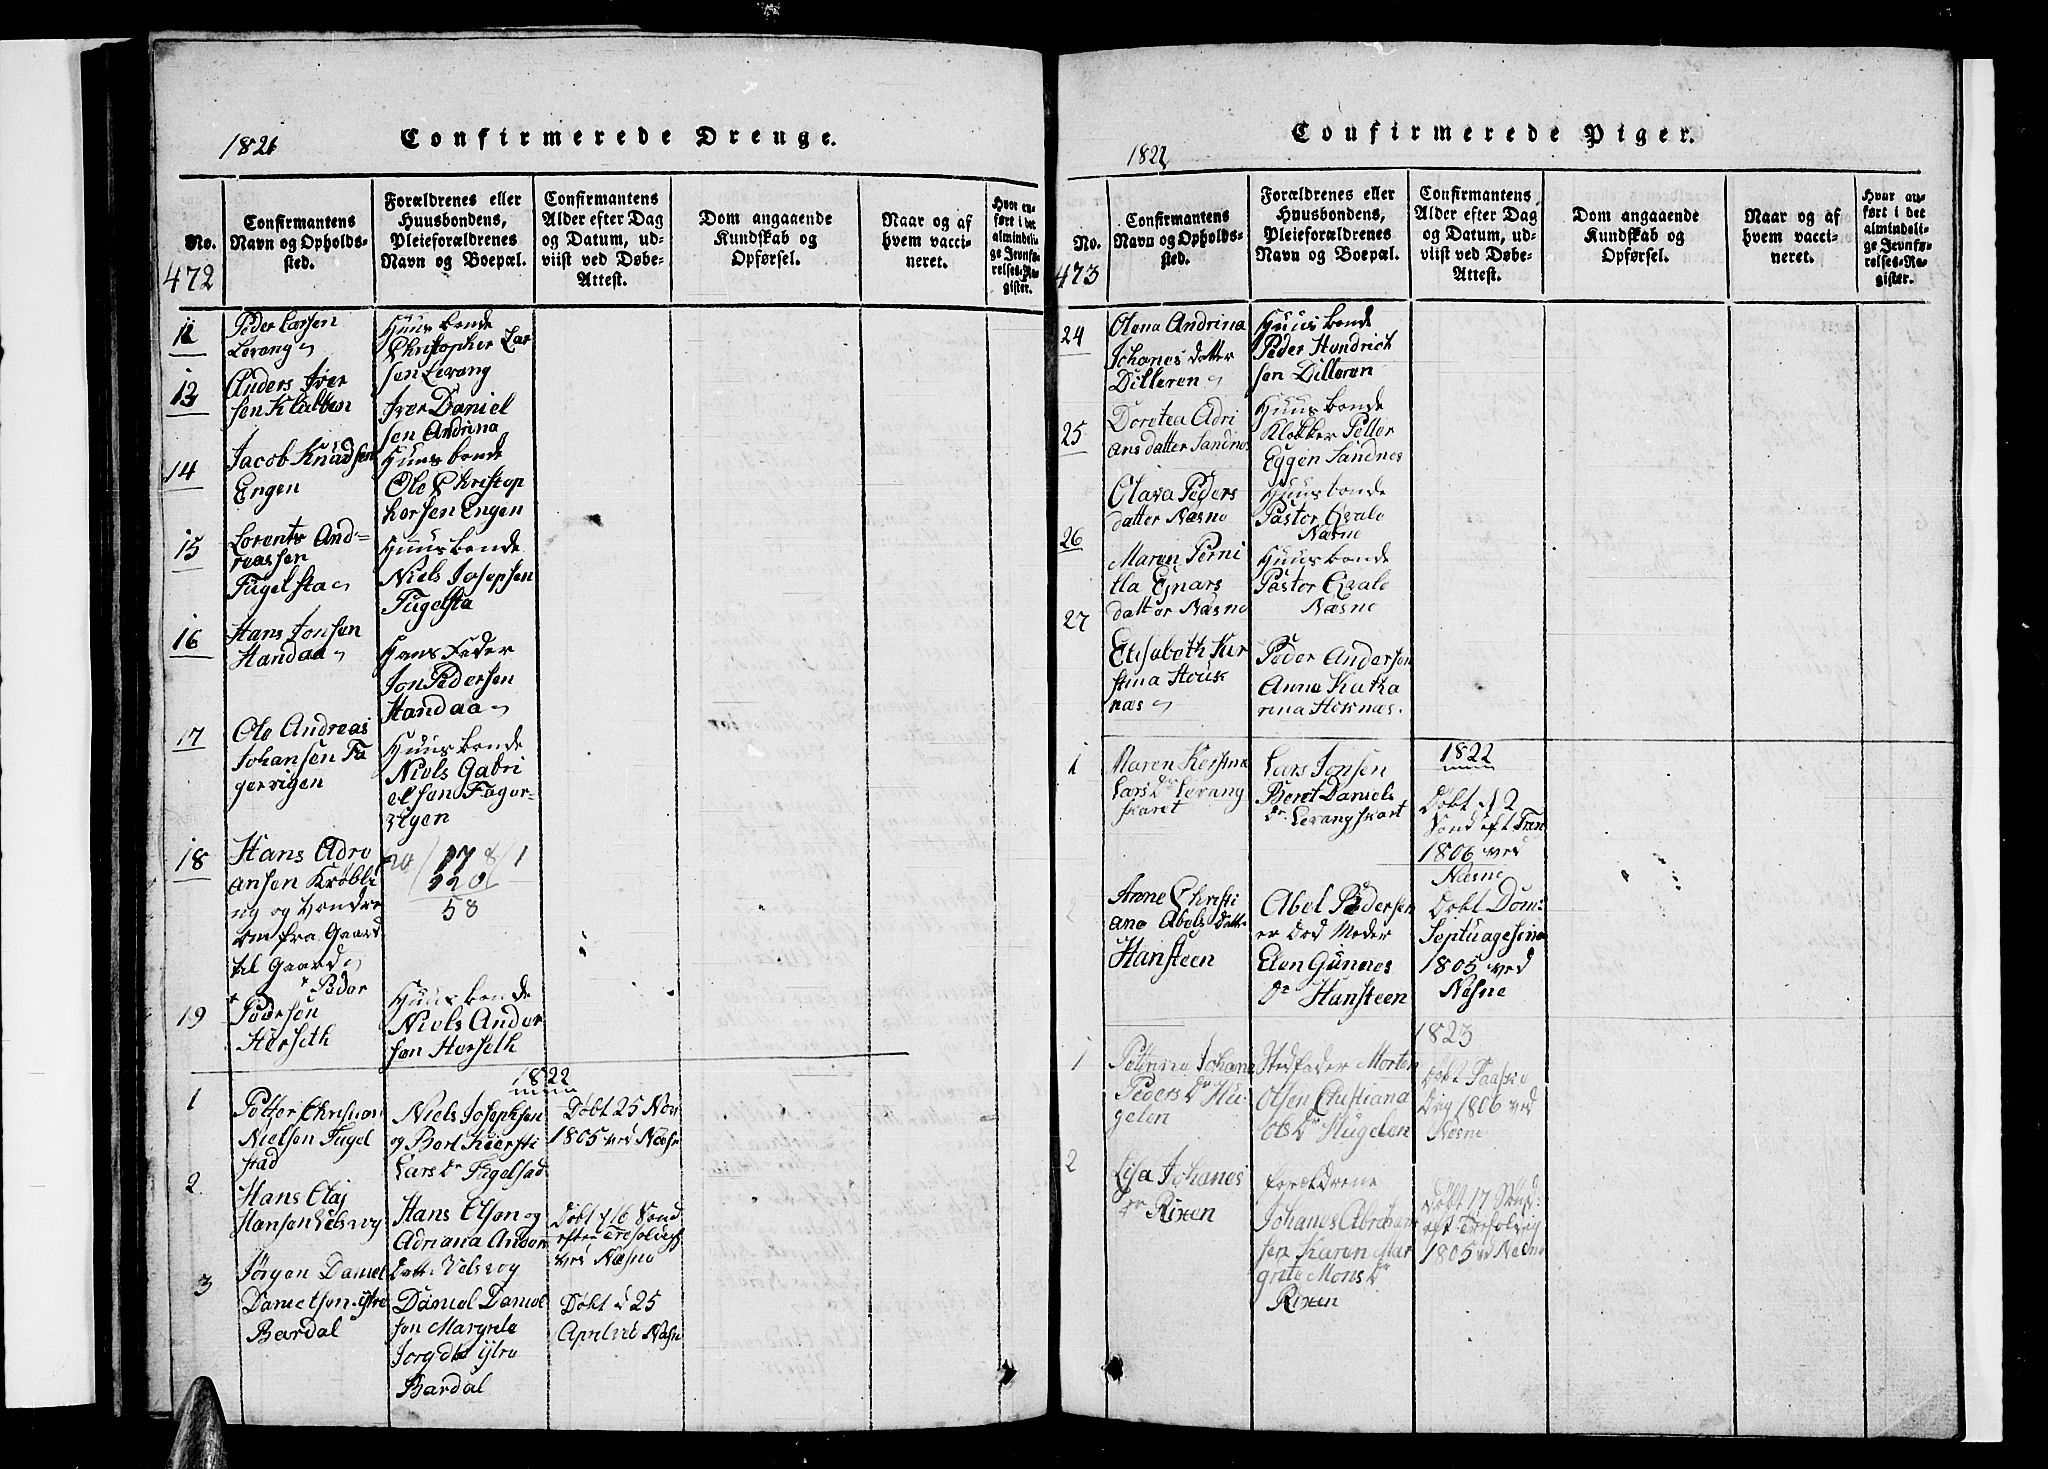 1821
Confirmerede Drenge.
No.
472
Confirmantens
Navn og Opholds-
sted.
Forældrenes eller
Huusbondens,
Pleieforældrenes
Navn og Boepæl.
Confirmantens
Alder efter Dag
og Datum, ud-
viist ved Døbe-
Attest.
Dom angaaende
Kundskab og
Opførsel.
Naar og af
hvem vacci-
neret.
Hvor an-
ført i det
almindeli-
ge Jevnfø-
relses-Re-
gister.
Peder Larsen
Levang
Huusbonde
Christopher Lar
sen Levang
13
Anders Iver
sen Klubben
Iver Daniel
sen Andrina
14
Jacob Knudsen
Engen
Huusbonde
Ole Christop
hersen Engen
15
Lorents And-
reassen
Fugelsta
Huusbonde
Niels Josepsen
Fugelsta
16
Hans Jonsen
Handaa
Hans Feder
Jon Pedersen
Handaa
17
Ole Andreas
Johansen Fa
gervigen
Huusbonde
Niels Gabri
elsen Fager-
vigen
18
Hans Adri
ansen Krøbli
ng og Vandre
om fra Gaard
til Gaard
20/178/1
120
58
19
Peder
Pedersen
Horseth
Huusbonde
Niels Ander
sen Horseth
1822
1
Petter Chrisnos
Nielsen Fugel
stad
Niels Josephsen
og Beret Kiersti
Lars Dr Fugelstad
Døbt 25 Nov
1805 ved Næsne
2
Hans Olaj
Hansen Velsvog
Hans Olsen og
Adriana Ander
Datt. Velsvog
Døbt d 16 Sond
efter Trefoldigh
ved Næsne
3
Jørgen Daniel
Danielsen ystre
Bardal
Daniel Daniel
sen Margrete
Jorg dtr ystre
Bardal
Døbt d 25
April ved Næsne
1821
Confirmerede Piger.
No.
473
Confirmantens
Navn og Opholds-
sted.
Forældrenes eller
Huusbondens,
Pleieforældrenes
Navn og Boepæl.
Confirmantens
Alder efter Dag
og Datum, ud-
viist ved Døbe-
Attest.
Dom angaaende
Kundskab og
Opførsel.
Naar og af
hvem vacci-
neret.
Hvor an-
ført i det
almindeli-
ge Jevnfø-
relses-Re-
gister.
24
Olena Andrina
Johanes datter
Dilleren
Huusbonde
Peder Hendrich
sen Dilleren
25
Doretea Adri
ansdatter Sandnes
Huusbonde
Klokker Petter
Eggen Sandnes
26
Olava Peders
datter Næsne
Huusbonde
Pastor Qvale
Næsne
27
Maren Perni
lla Ejnars
datter Næsne
Huusbonde
Pastor Qvale
Næsne
Elisabeth Kir
stina Houk
næs
Peder Andersen
Anne Katha
rina Hoknæs.
1822
1
Maren Kirstina
Lars Dr Levang
skaret
Lars Jonsen
Beret Daniels
Dr Levangskaret
Døbt d 2
Sond eft Tren
1806 ved
Næsne
2
Anne Christi
ana Abels Datt
Hansteen
Abel Pedersen
er Død Moder
Elen Gunnes
Dr Hansteen
Døbt Dom:
Septuagesima
1805 ved
Næsne
1823
1
Petrine Johane
Peders Dr Hu-
gelen
Stedfader Morten
Olsen Christiana
Ols Dr Hugelen
Døbt Paaske
Dag 1806 ved
Næsne
2
Lisa Johanes
Dr Rixen
Forældrene
Johanes Abraham
sen Karen Mar
grete Mons Dr
Rixen
Døbt 17 Sønd:
eft Trefoldig
1805 ved Næsne